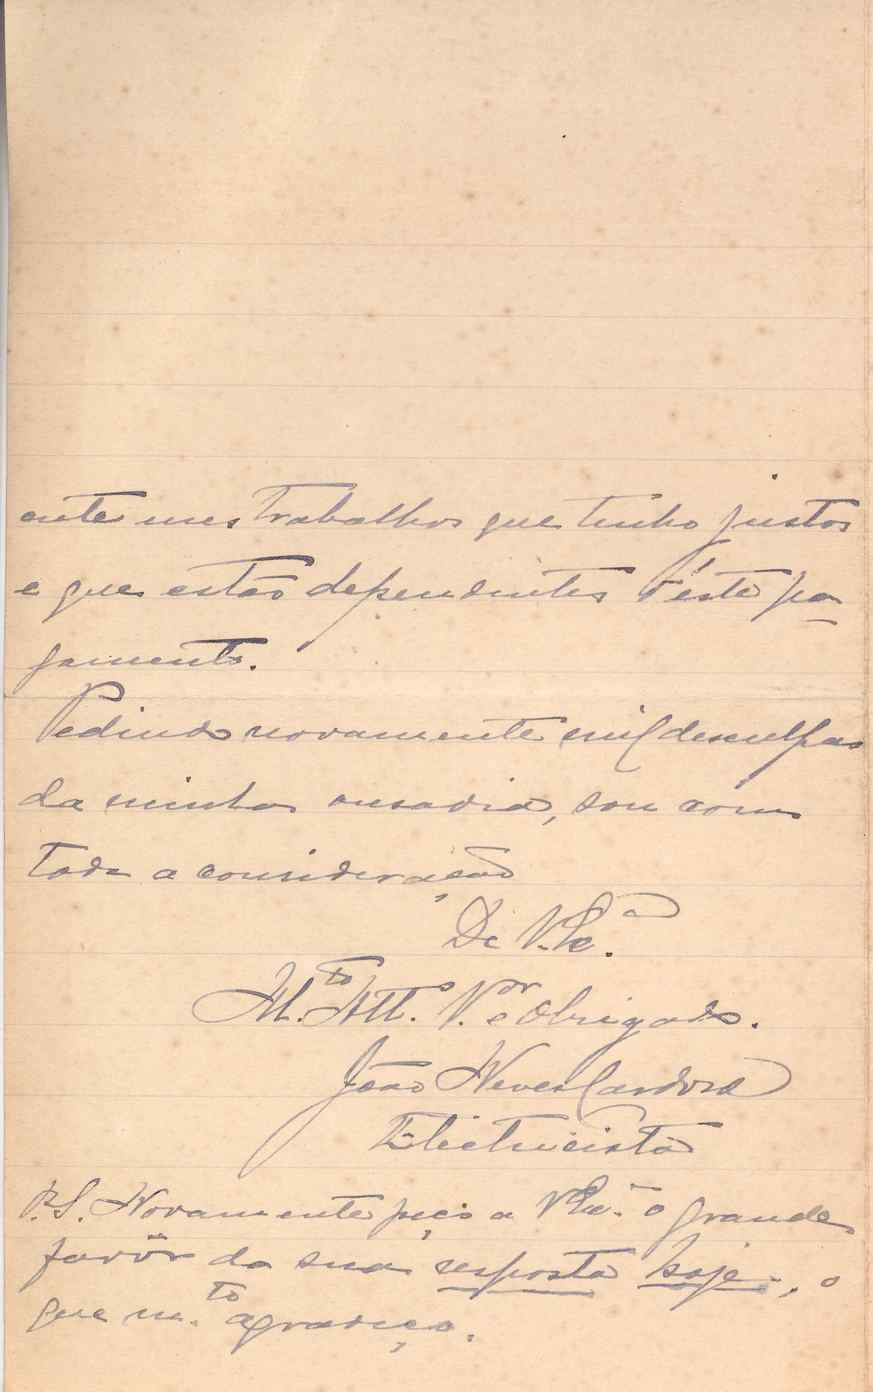 ante uns trabalhos que tenho justos
e que estão dependentes d'éste pa-
gamento.
Pedindo novamente mil desculpas
da minha ousadia, sou com
toda a consideração
De V. Ex.ª
M.to Att.o V.or e Obrigado.
João Neves Cardoso
Electricista
P.S. Novamente peço a V. Ex.ª o grande
favôr da sua resposta hoje, o
que m.to agradeço.